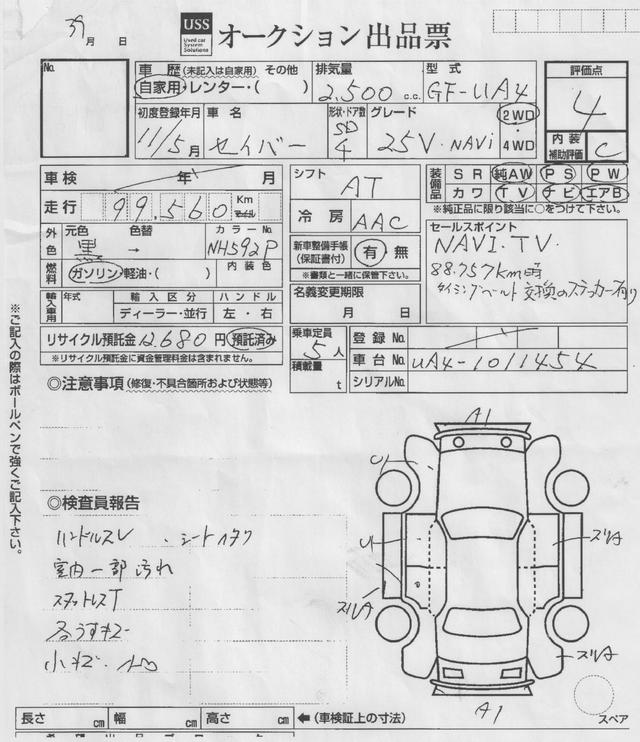 月 日
USS
Used car
System
Solutions
オークション出品票
No.
車 歴 (未記入は自家用) その他
自家用・レンター・( )
排気量
2,500 c.c.
型 式
GF-UA4
評価点
4
内装
補助評価
C
初度登録年月
11/5月
車 名
セイバー
形状・ドア数
SD
4
グレード
25V・NAVi
2WD
・
4WD
車検 年 月
走行 99,560 Km
マイル
外色
元色 色替
黒 →
カラーNo.
NH592P
燃料
ガソリン・軽油・( )
内 装 色
輸入車用
年式
輸 入 区 分
ディーラー・並行
ハ ン ド ル
左 ・ 右
リサイクル預託金 12,680 円 預託済み
※リサイクル預託金に資金管理料金は含まれません。
シフト
AT
冷 房
AAC
新車整備手帳
(保証書付)
有・無
※書類と一緒に保管下さい。
名義変更期限
月 日
乗車定員
5人
積載量
t
装備品
S R 純AW P S P W
カ ワ T V ナ ビ エアB
※純正品に限り該当に○をつけて下さい。
セールスポイント
NAVI・TV・
88.757Km時
タイミングベルト 交換のステッカー有り
登 録 No.
車 台 No. UA4-1011454
シリアルNo.
◎注意事項 (修復・不具合箇所および状態等)
◎検査員報告
ハンドルスレ ・ シートヘタリ
室内一部汚れ
スタットレスT
各うすキズ
小キズ・凹
※ご記入の際はボールペンで強くご記入下さい。
A1
A1
スペア
長さ cm 幅 cm 高さ cm ← (車検証上の寸法)